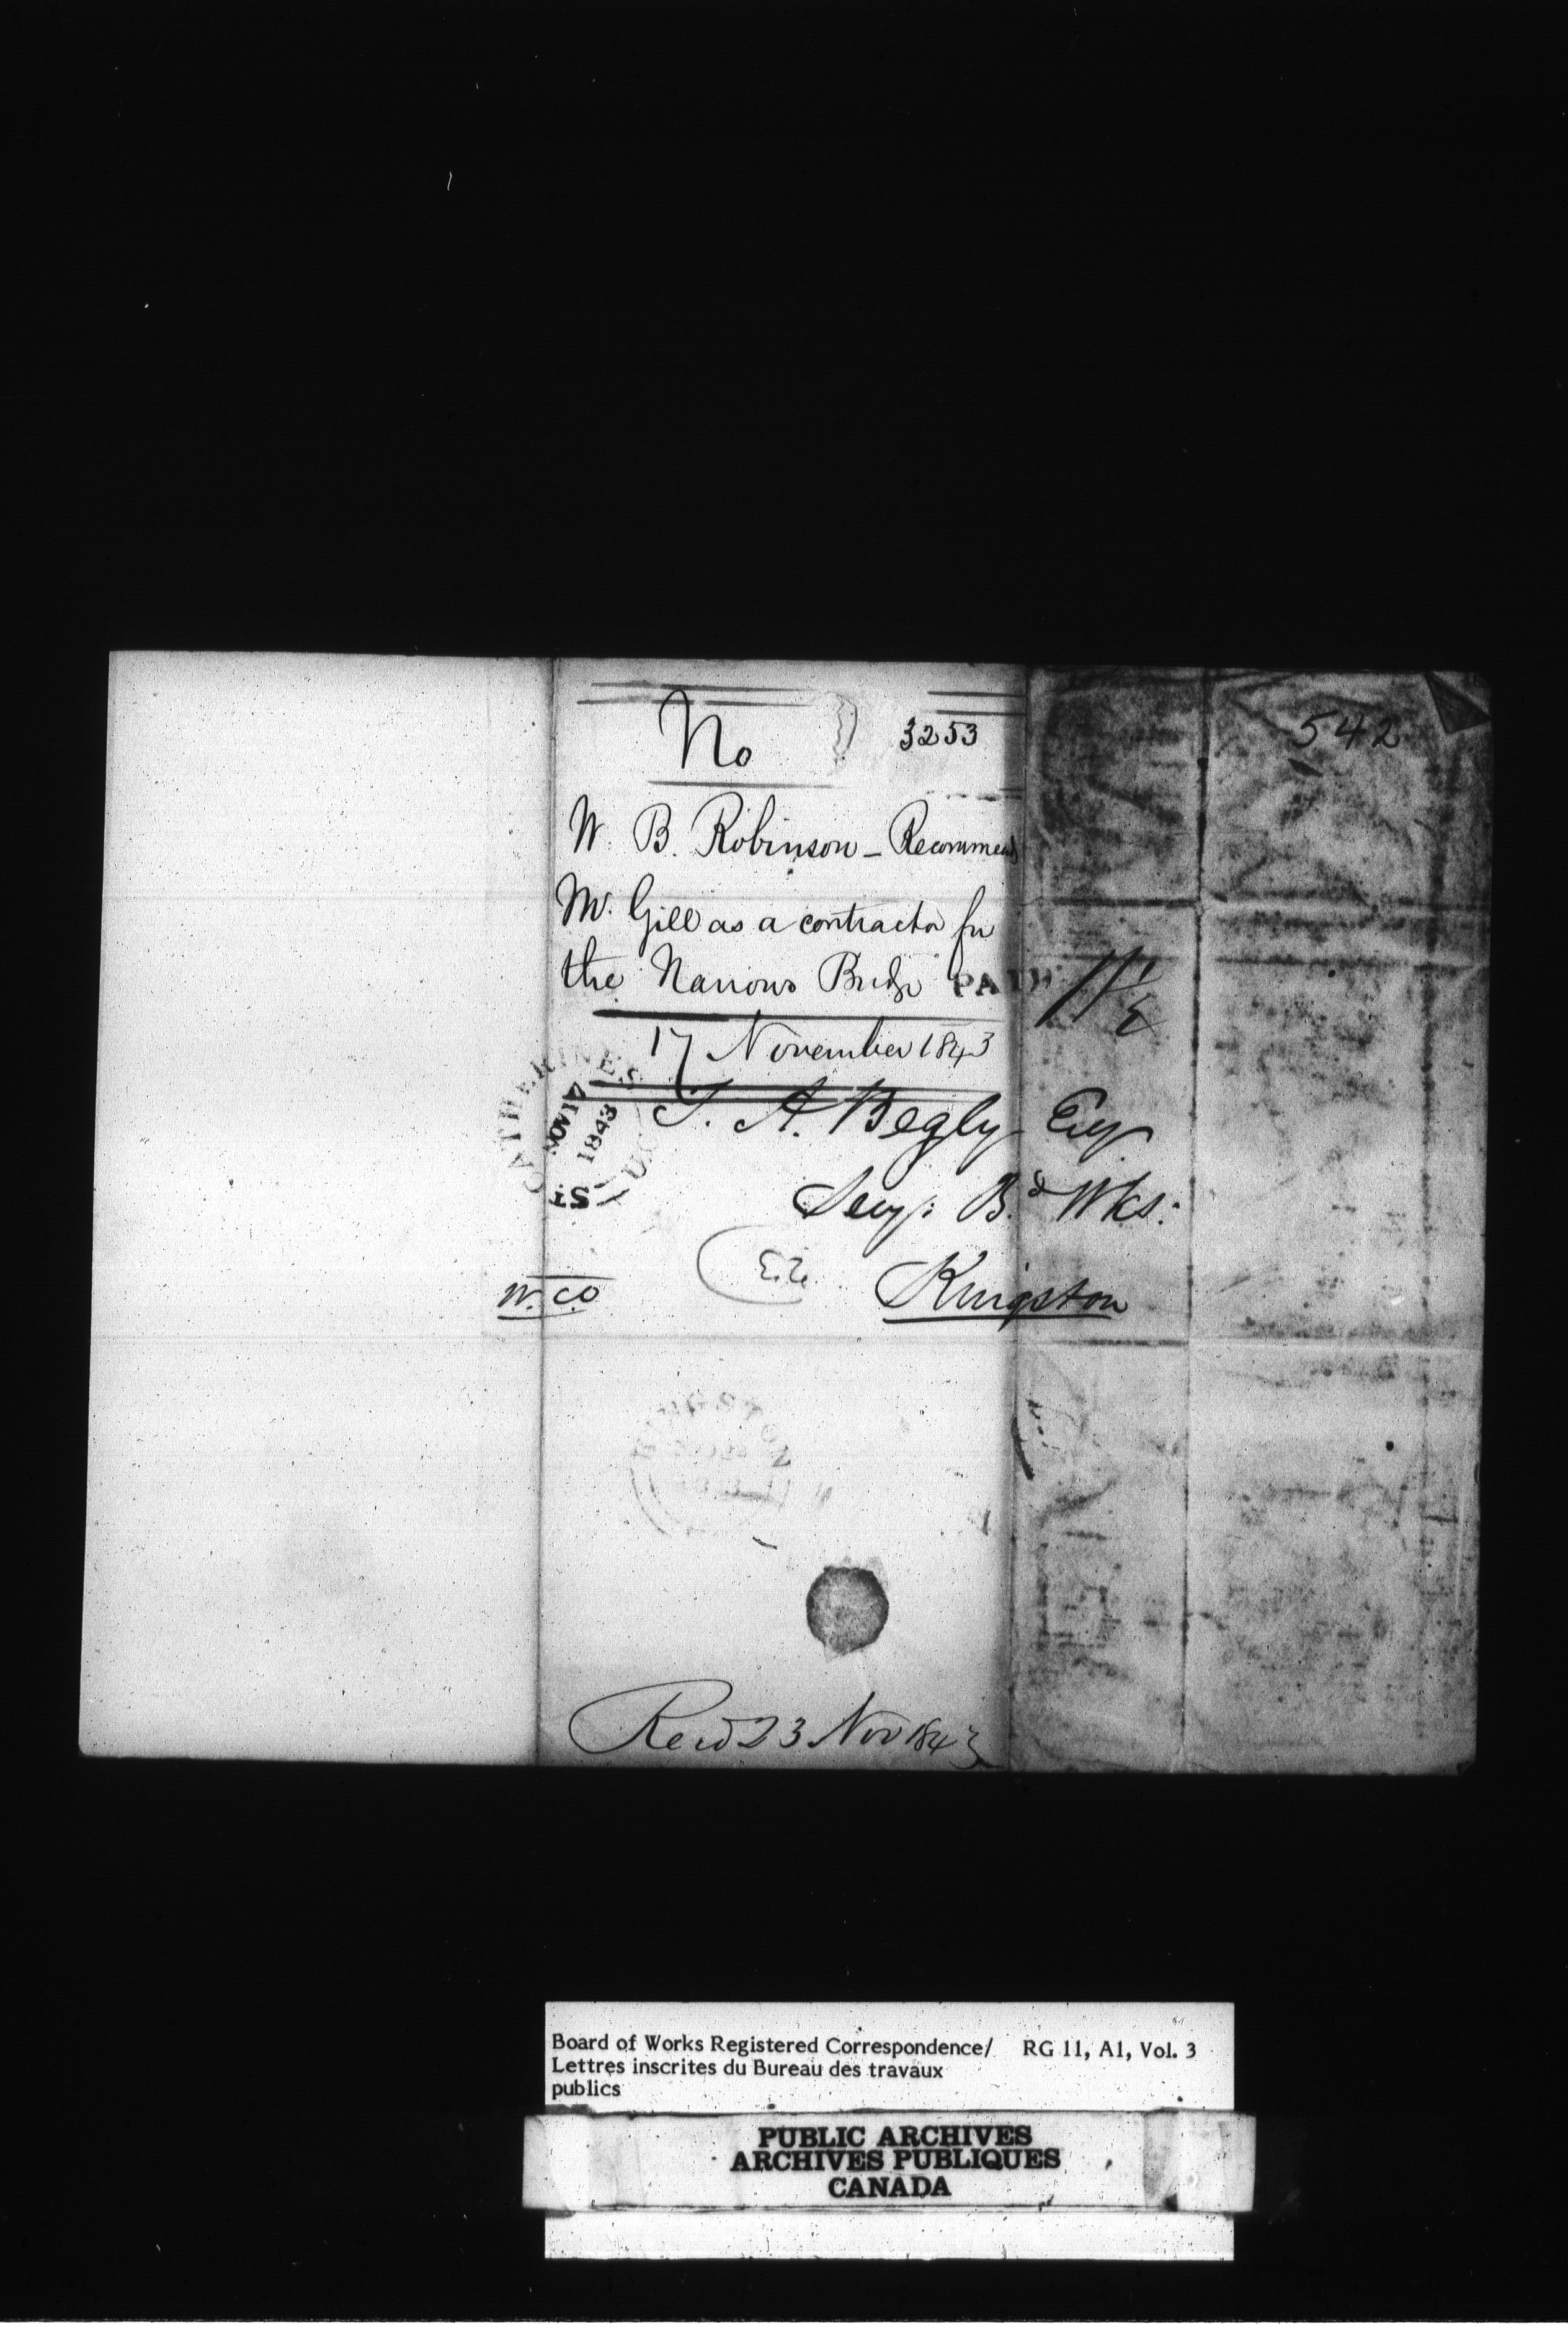 No 3253
542
W. B. Robinson - Recommends
Mr. Gill as a contractor for
the Narrows Bridge
PAID 1/1½
17 November 1843
ST CATHERINES U.C.
NOV 17
1843
T. A. Begly Esqr
Secy: Bd Wks:
Kingston
W. C.O
Recd 23 Nov 1843
Board of Works Registered Correspondence/ RG 11, A1, Vol. 3
Lettres inscrites du Bureau des travaux
publics
PUBLIC ARCHIVES
ARCHIVES PUBLIQUES
CANADA